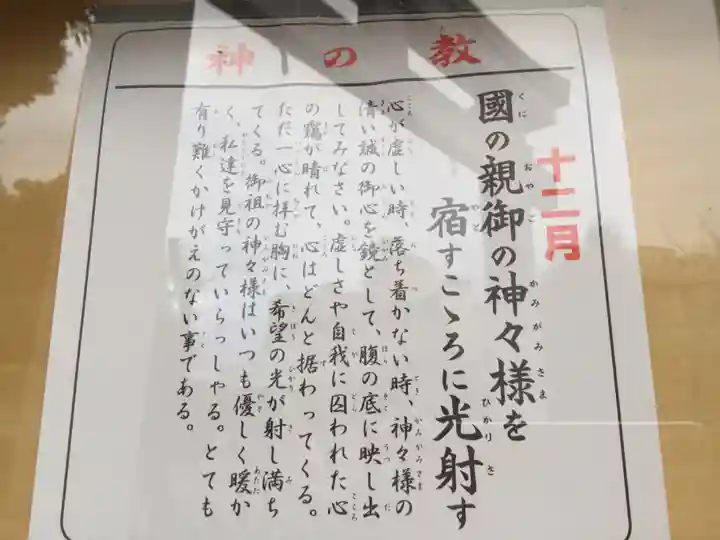 神の教
十二月
國の親御の神々様を
宿すこゝろに光射す
心が虚しい時、落ち着かない時、神々様の
清い誠の御心を鏡として、腹の底に映し出
してみなさい。虚しさや自我に囚われた心
の靄が晴れて、心はどんと据わってくる。
ただ一心に拝む胸に、希望の光が射し満ち
てくる。御祖の神々様はいつも優しく暖か
く、私達を見守っていらっしゃる。とても
有り難くかけがえのない事である。